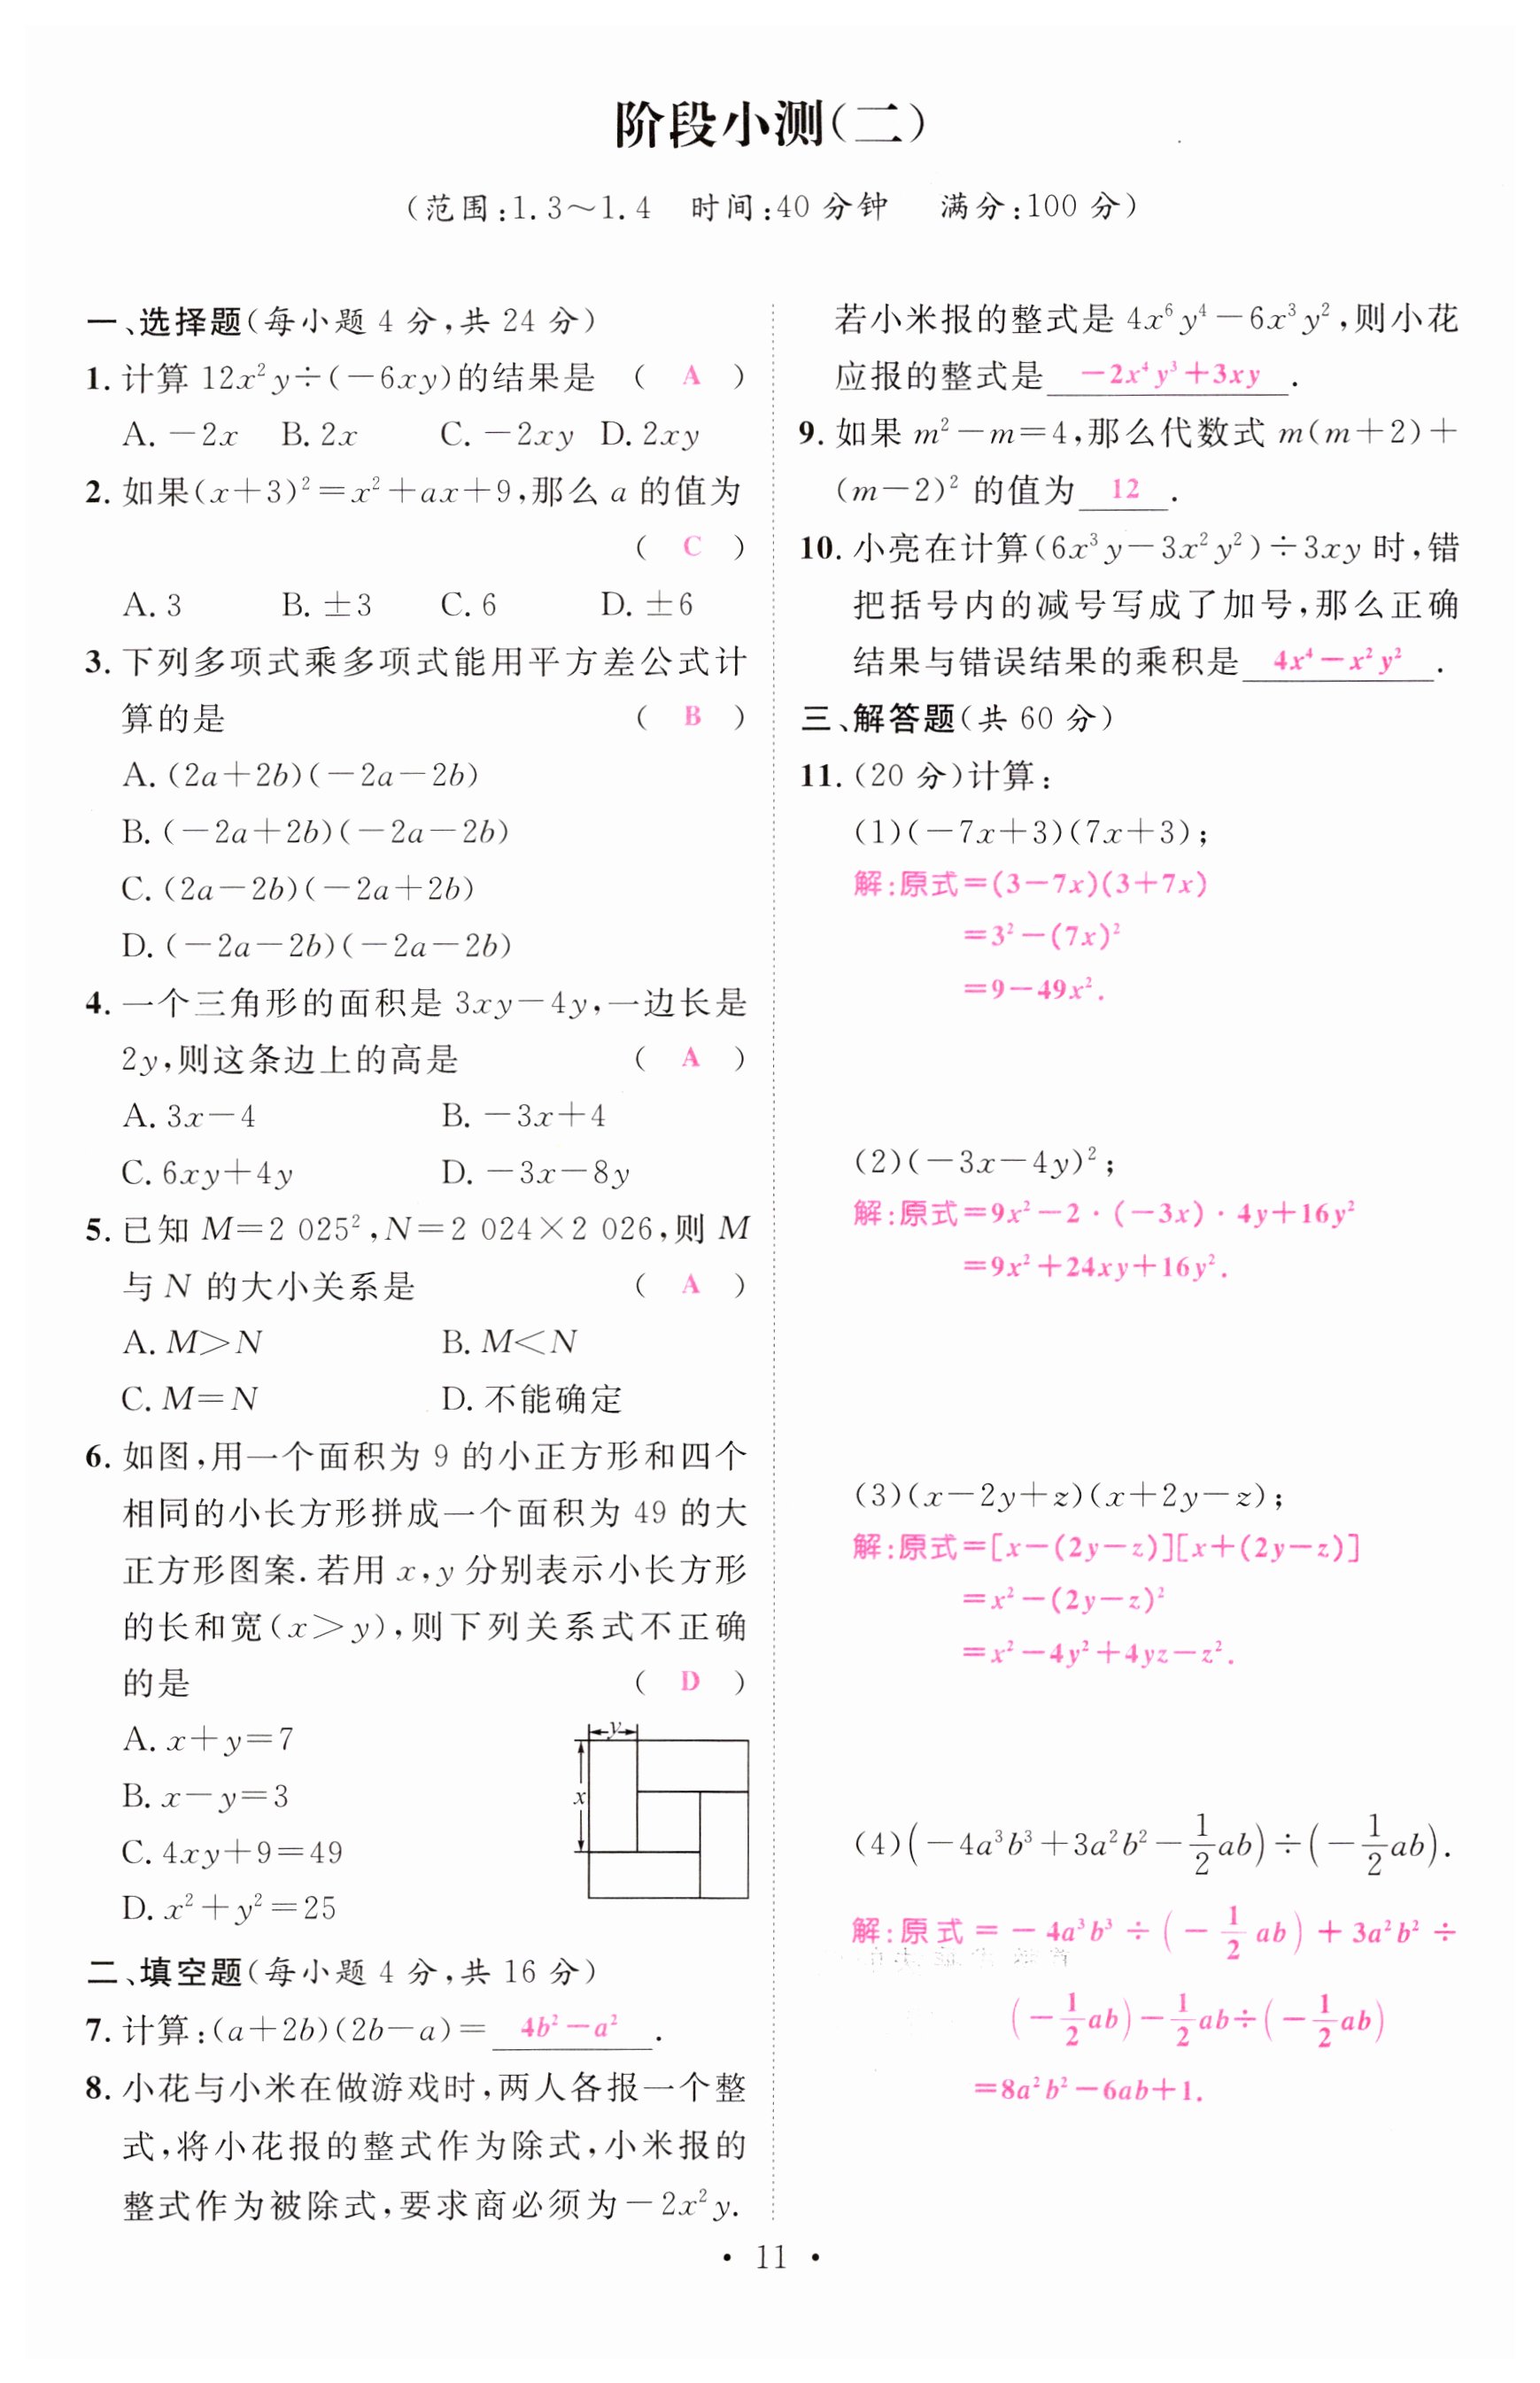 阶段小测(二)
(范围:1.3～1.4 时间:40分钟 满分:100分)
一、选择题(每小题4分,共24分)
1. 计算 12x²y÷(－6xy)的结果是 ( A )
A. －2x B. 2x C. －2xy D. 2xy
2. 如果(x＋3)²＝x²＋ax＋9,那么 a 的值为
( C )
A. 3 B. ±3 C. 6 D. ±6
3. 下列多项式乘多项式能用平方差公式计
算的是 ( B )
A. (2a＋2b)(－2a－2b)
B. (－2a＋2b)(－2a－2b)
C. (2a－2b)(－2a＋2b)
D. (－2a－2b)(－2a－2b)
4. 一个三角形的面积是 3xy－4y,一边长是
2y,则这条边上的高是 ( A )
A. 3x－4 B. －3x＋4
C. 6xy＋4y D. －3x－8y
5. 已知 M＝2 025²,N＝2 024×2 026,则 M
与 N 的大小关系是 ( A )
A. M＞N B. M＜N
C. M＝N D. 不能确定
6. 如图,用一个面积为 9 的小正方形和四个
相同的小长方形拼成一个面积为 49 的大
正方形图案.若用 x,y 分别表示小长方形
的长和宽(x＞y),则下列关系式不正确
的是 ( D )
A. x＋y＝7
B. x－y＝3
C. 4xy＋9＝49
D. x²＋y²＝25
y
x
二、填空题(每小题4分,共16分)
7. 计算:(a＋2b)(2b－a)＝ 4b²－a² .
8. 小花与小米在做游戏时,两人各报一个整
式,将小花报的整式作为除式,小米报的
整式作为被除式,要求商必须为－2x²y.
若小米报的整式是 4x⁶y⁴－6x³y²,则小花
应报的整式是 －2x⁴y³＋3xy .
9. 如果 m²－m＝4,那么代数式 m(m＋2)＋
(m－2)² 的值为 12 .
10. 小亮在计算(6x³y－3x²y²)÷3xy 时,错
把括号内的减号写成了加号,那么正确
结果与错误结果的乘积是 4x⁴－x²y² .
三、解答题(共60分)
11. (20分)计算:
(1)(－7x＋3)(7x＋3);
解:原式＝(3－7x)(3＋7x)
＝3²－(7x)²
＝9－49x².
(2)(－3x－4y)²;
解:原式＝9x²－2·(－3x)·4y＋16y²
＝9x²＋24xy＋16y².
(3)(x－2y＋z)(x＋2y－z);
解:原式＝[x－(2y－z)][x＋(2y－z)]
＝x²－(2y－z)²
＝x²－4y²＋4yz－z².
(4)(－4a³b³＋3a²b²－1/2ab)÷(－1/2ab).
解:原式＝－4a³b³÷(－1/2ab)＋3a²b²÷
(－1/2ab)－1/2ab÷(－1/2ab)
＝8a²b²－6ab＋1.
• 11 •